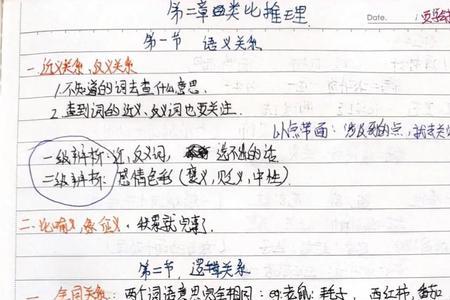 第二章 类比推理
Date.
第一节 语义关系
一.近义关系、反义关系
1.不知道的词去查什么意思.
2.查到词的近义、反义词也要关注.
以点带面:涉及到的点,
一级辨析:近、反义词, 选不出的话
二级辨析:感情色彩(褒义,贬义,中性)
二.比喻义,象征义.
第二节,逻辑关系
一.全同关系:两个词语意思完全相同:eg:老鼠:耗子, 西红柿:番茄